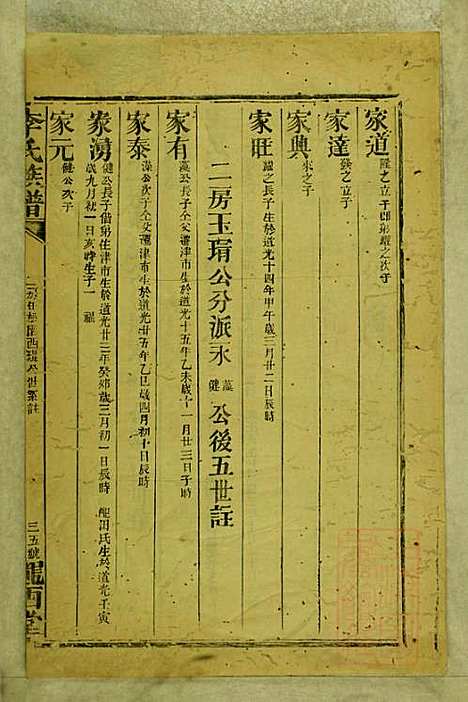 家道 隆之立子即弟耀之次子
家達 發之立子
家典 來之子
家旺 耀之長子生於道光十四年甲午歲三月廿二日辰時
二房玉瑃公分派永藻健公後五世註
家有 藻公長子仝父遷津市生於道光十五年乙未歲十一月廿三日子時
家泰 藻公次子仝父遷津市生於道光廿五年乙巳歲四月初十日辰時
家湧 健公長子偕弟住津市生於道光廿三年癸卯歲三月初一日辰時 配田氏生於道光壬寅
歲九月初一日亥時生子一 福
家元 健公次子
李氏族譜
三五號 隴西堂